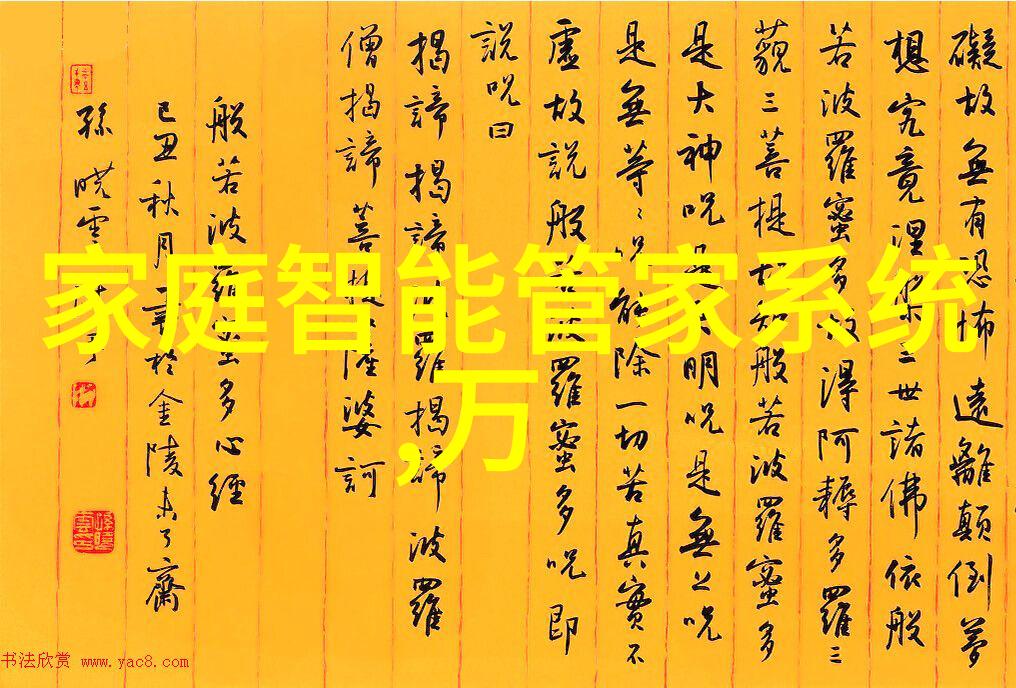 家庭智能管家系统
,万
礙故無有恐怖遠離顛倒夢
想究竟涅槃三世諸佛依般
若波羅蜜多故得阿耨多羅三
藐三菩提故知般若波羅蜜多
是大神咒是大明咒是無上咒
是無等〻咒能除一切苦真實不
虛故說般若波羅蜜多咒即
說咒曰
揭諦揭諦波羅揭諦波羅
僧揭諦菩提薩婆訶
般若波羅蜜多心經
己丑秋月 於金陵未了齋
孫曉雲
书法欣赏 www.yac8.com